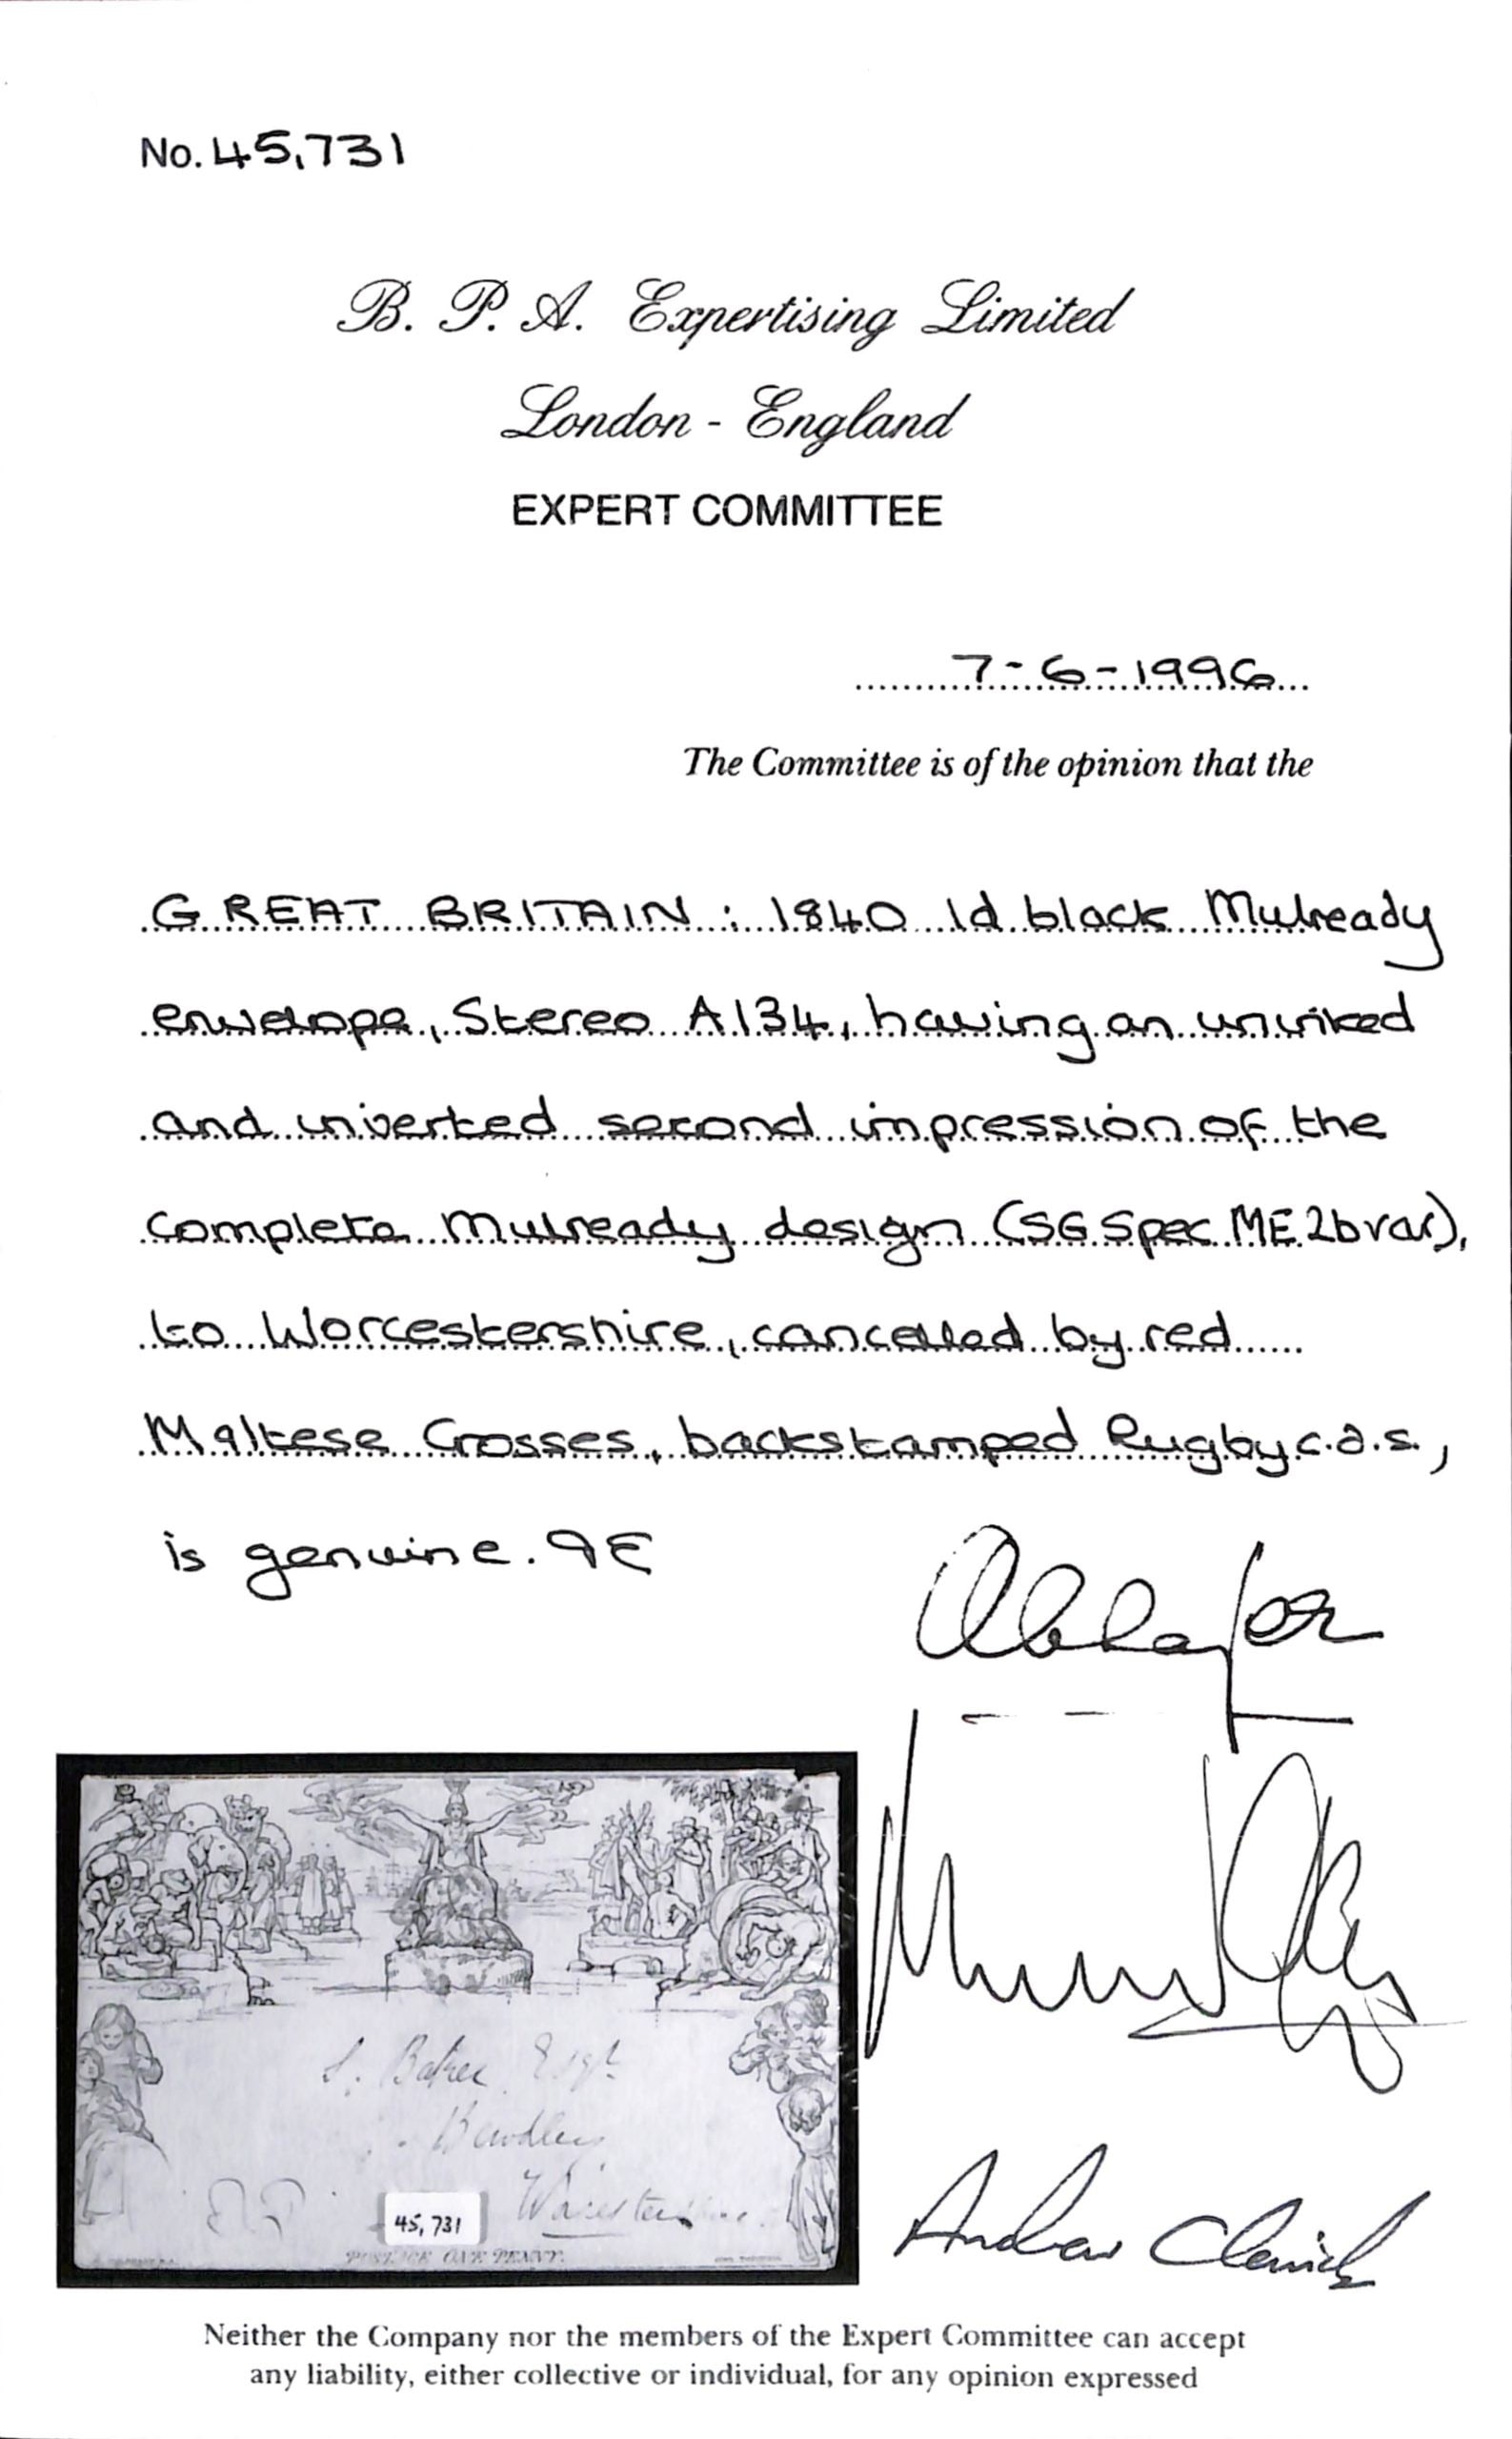 No. 45,731
B. P. A. Expertising Limited
London - England
EXPERT COMMITTEE
7-6-1996
The Committee is of the opinion that the
GREAT BRITAIN : 1840 1d black Mulready
envelope, Stereo A134, having an uninked
and inverted second impression of the
complete Mulready design (SG Spec ME2b var),
to Worcestershire, cancelled by red
Maltese Crosses, backstamped Rugby c.d.s.,
is genuine.
Baker Esqr
Bewdley
45,731
POSTAGE ONE PENNY.
Andrew
Neither the Company nor the members of the Expert Committee can accept
any liability, either collective or individual, for any opinion expressed